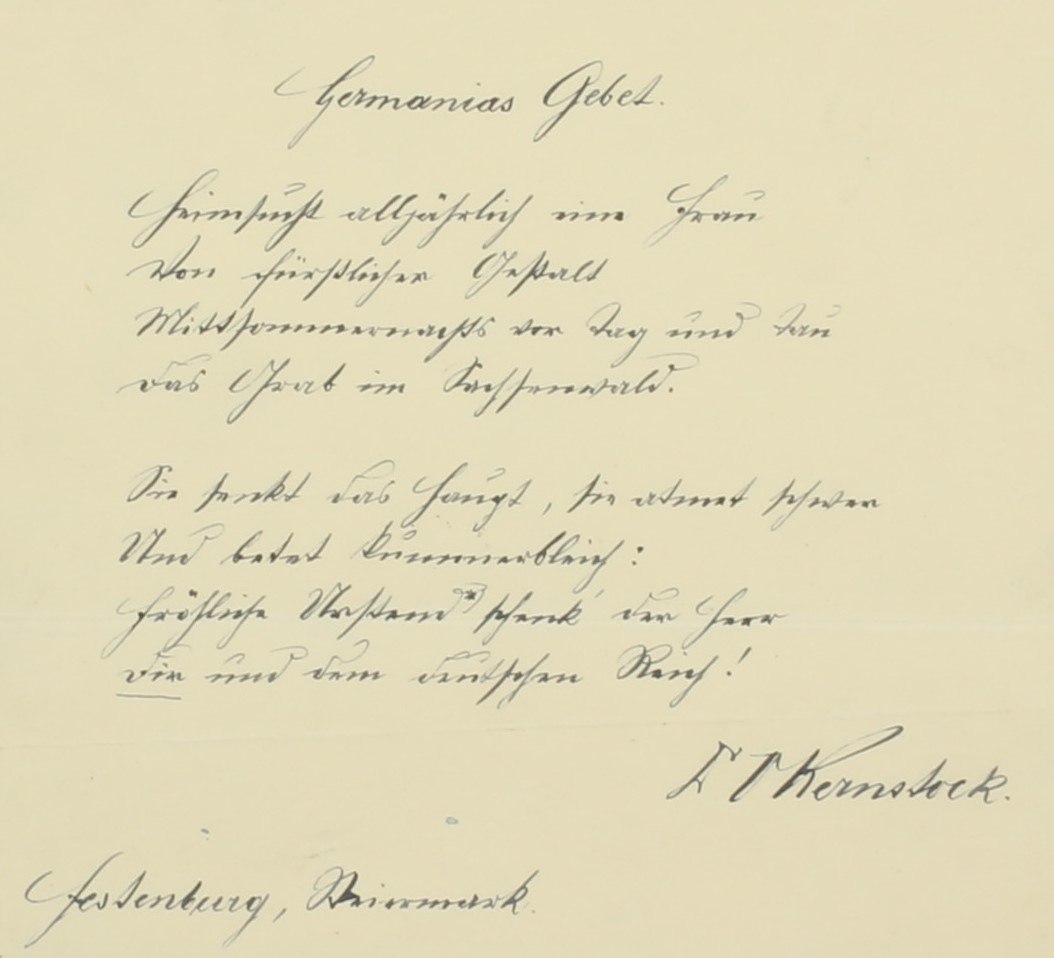 Germanias Gebet.
Heimsucht alljährlich eine Frau
Von fürstlicher Gestalt
Mittsommernachts vor Tag und Tau
Das Grab im Sachsenwald.
Sie senkt das Haupt, sie atmet schwer
Und betet kummerbleich:
Fröhliche Urständ schenk' der Herr
Dir und dem deutschen Reich!
Kernstock.
Festenburg, Steiermark.